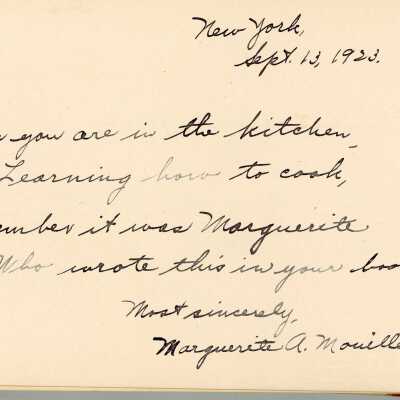 New York,
Sept. 13, 1923.
you are in the kitchen
Learning how to cook,
ember it was Marguerite
Who wrote this in your boo
Most sincerely,
Marguerite A. Mouille